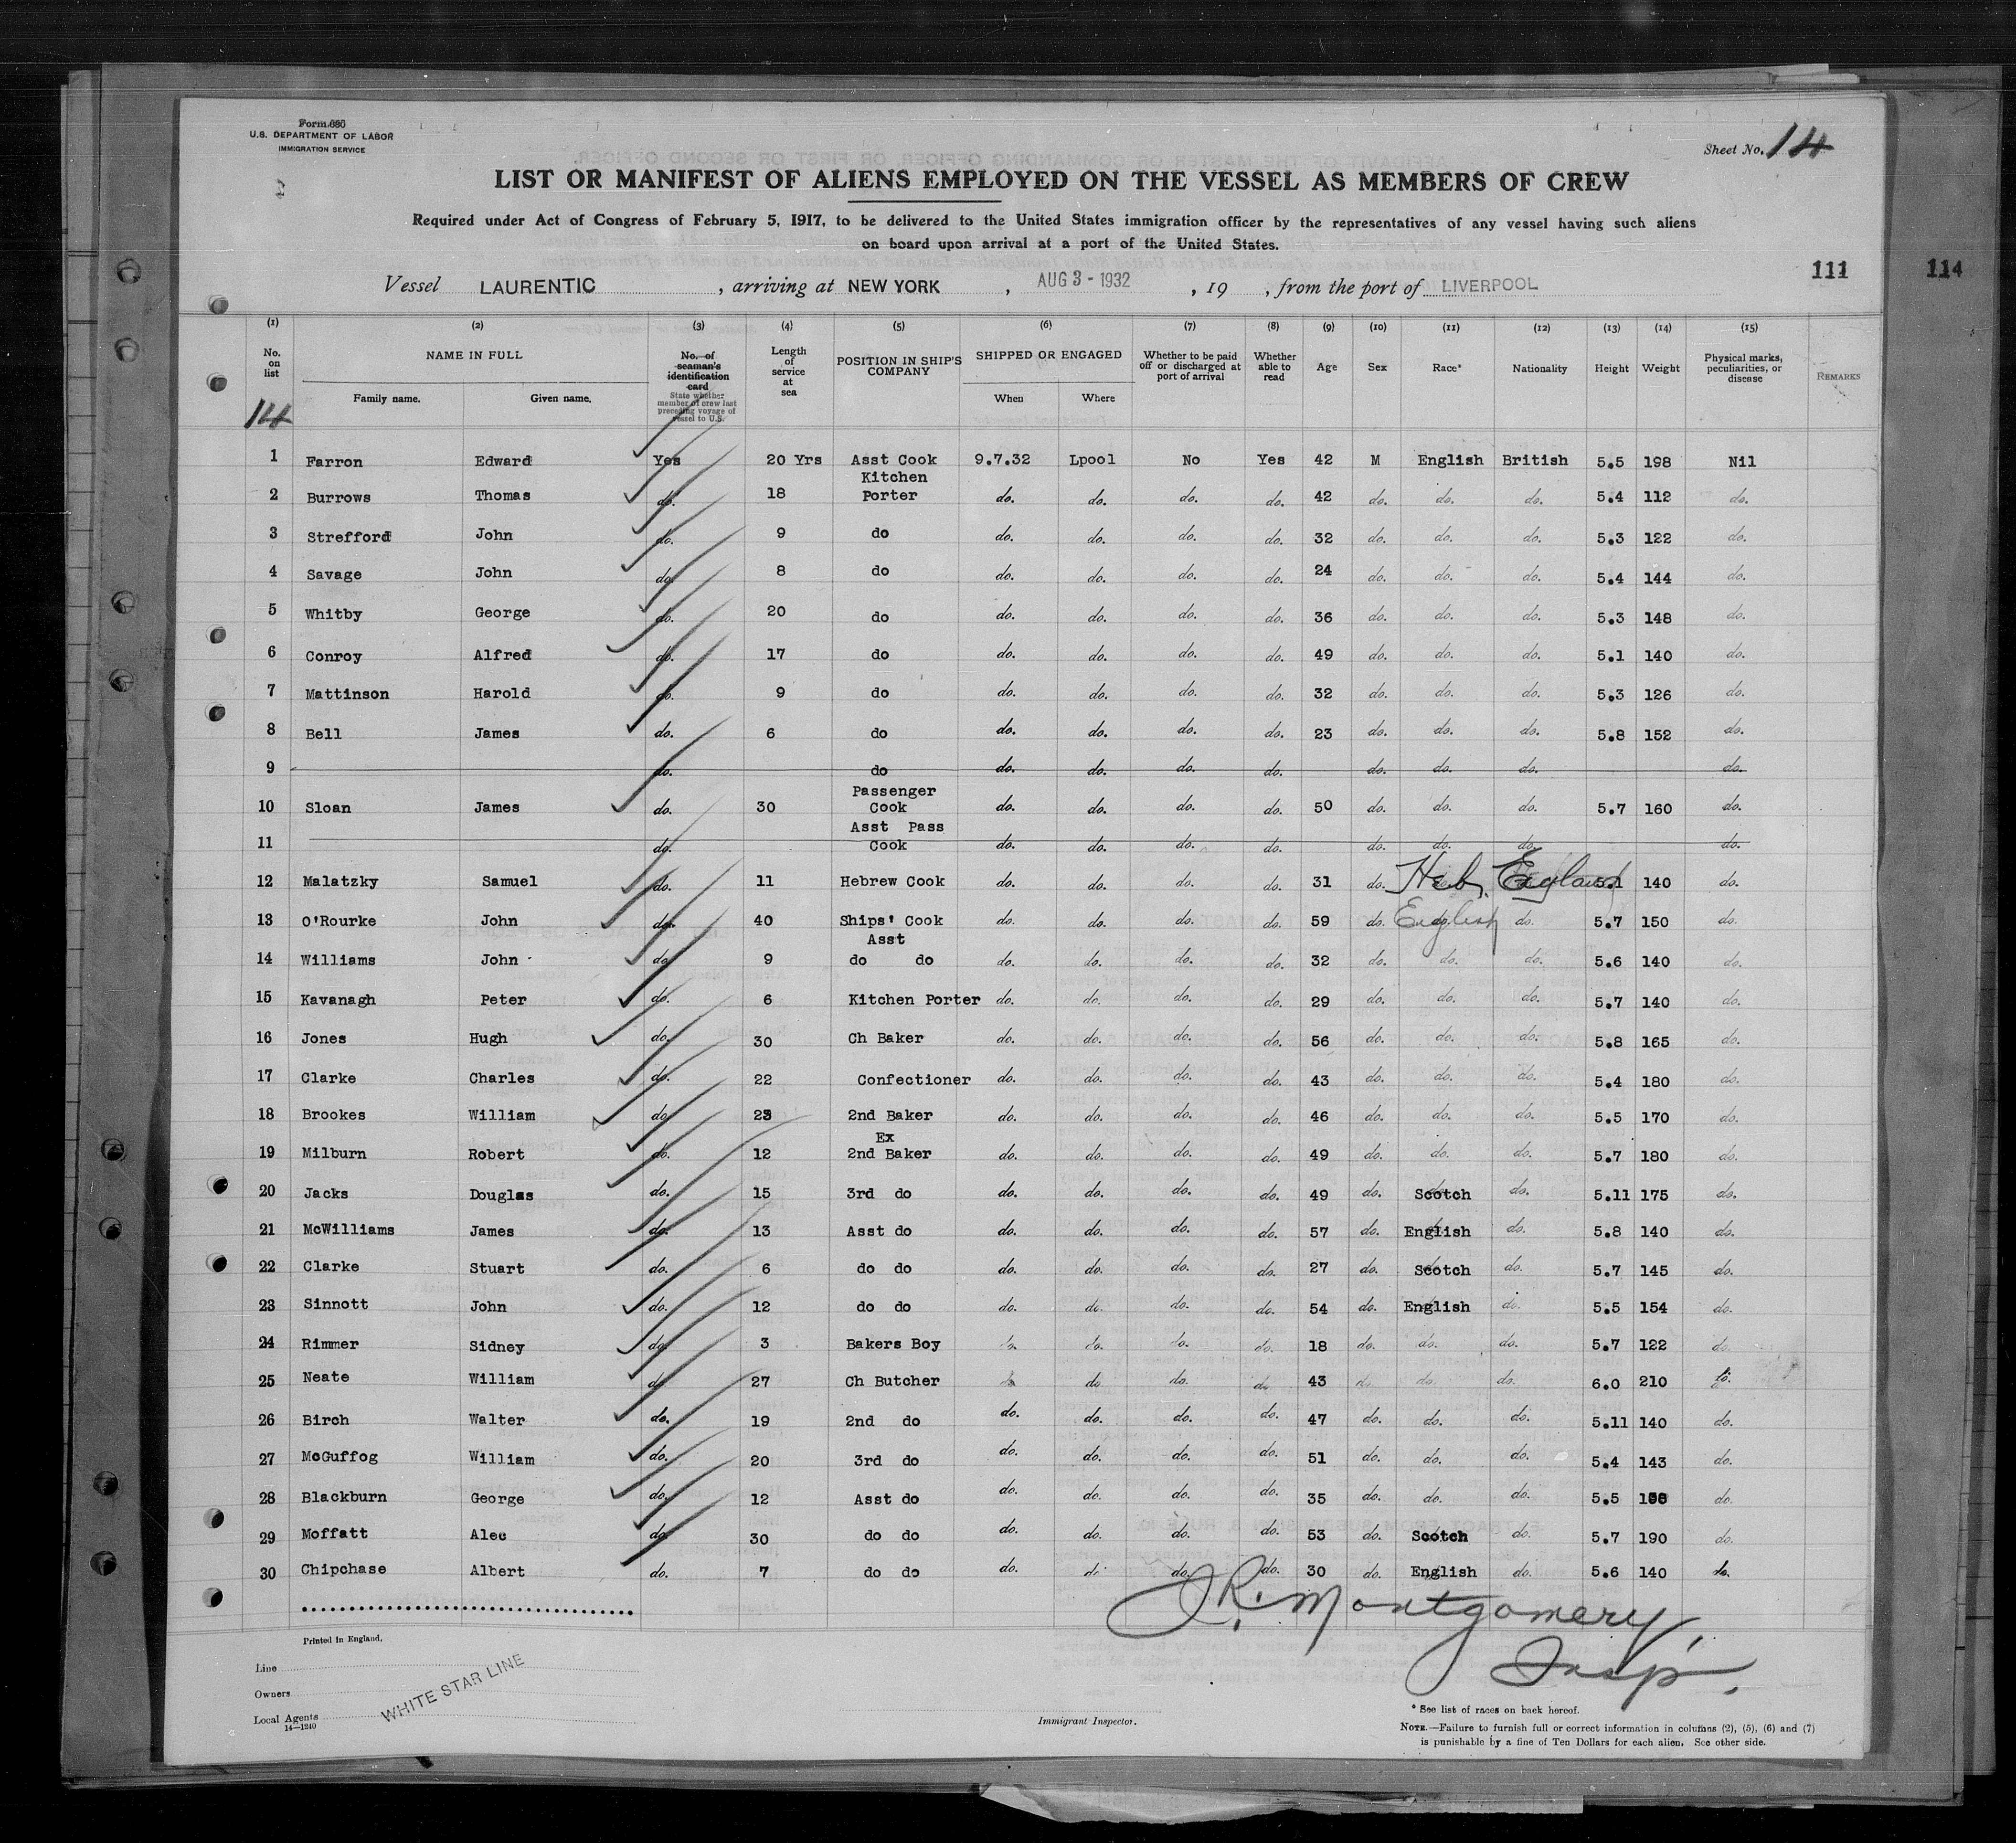 Form 680
U.S. DEPARTMENT OF LABOR
IMMIGRATION SERVICE
Sheet No. 14
LIST OR MANIFEST OF ALIENS EMPLOYED ON THE VESSEL AS MEMBERS OF CREW
Required under Act of Congress of February 5, 1917, to be delivered to the United States immigration officer by the representatives of any vessel having such aliens
on board upon arrival at a port of the United States.
111 114
Vessel LAURENTIC, arriving at NEW YORK, AUG 3 - 1932, 19 , from the port of LIVERPOOL
(1) (2) (3) (4) (5) (6) (7) (8) (9) (10) (11) (12) (13) (14) (15)
No. on list NAME IN FULL Family name. Given name. No. of seaman's identification card State whether member of crew last preceding voyage of vessel to U.S. Length of service at sea POSITION IN SHIP'S COMPANY SHIPPED OR ENGAGED When Where Whether to be paid off or discharged at port of arrival Whether able to read Age Sex Race* Nationality Height Weight Physical marks, peculiarities, or disease REMARKS
14
1 Farron Edward Yes 20 Yrs Asst Cook 9.7.32 Lpool No Yes 42 M English British 5.5 198 Nil
2 Burrows Thomas do. 18 Kitchen Porter do. do. do. do. 42 do. do. do. 5.4 112 do.
3 Strefford John do. 9 do do. do. do. do. 32 do. do. do. 5.3 122 do.
4 Savage John do. 8 do do. do. do. do. 24 do. do. do. 5.4 144 do.
5 Whitby George do. 20 do do. do. do. do. 36 do. do. do. 5.3 148 do.
6 Conroy Alfred do. 17 do do. do. do. do. 49 do. do. do. 5.1 140 do.
7 Mattinson Harold do. 9 do do. do. do. do. 32 do. do. do. 5.3 126 do.
8 Bell James do. 6 do do. do. do. do. 23 do. do. do. 5.8 152 do.
9 do. do do. do. do. do. do. do. do. do.
10 Sloan James do. 30 Passenger Cook do. do. do. do. 50 do. do. do. 5.7 160 do.
11 do. Asst Pass Cook do. do. do. do. do. do. do. do.
12 Malatzky Samuel do. 11 Hebrew Cook do. do. do. do. 31 do. Heb. England 5.1 140 do.
13 O'Rourke John do. 40 Ships' Cook do. do. do. do. 59 do. English do. 5.7 150 do.
14 Williams John do. 9 Asst do do do. do. do. do. 32 do. do. do. 5.6 140 do.
15 Kavanagh Peter do. 6 Kitchen Porter do. do. do. do. 29 do. do. do. 5.7 140 do.
16 Jones Hugh do. 30 Ch Baker do. do. do. do. 56 do. do. do. 5.8 165 do.
17 Clarke Charles do. 22 Confectioner do. do. do. do. 43 do. do. do. 5.4 180 do.
18 Brookes William do. 23 2nd Baker do. do. do. do. 46 do. do. do. 5.5 170 do.
19 Milburn Robert do. 12 Ex 2nd Baker do. do. do. do. 49 do. do. do. 5.7 180 do.
20 Jacks Douglas do. 15 3rd do do. do. do. do. 49 do. Scotch do. 5.11 175 do.
21 McWilliams James do. 13 Asst do do. do. do. do. 57 do. English do. 5.8 140 do.
22 Clarke Stuart do. 6 do do do. do. do. do. 27 do. Scotch do. 5.7 145 do.
23 Sinnott John do. 12 do do do. do. do. do. 54 do. English do. 5.5 154 do.
24 Rimmer Sidney do. 3 Bakers Boy do. do. do. do. 18 do. do. do. 5.7 122 do.
25 Neate William do. 27 Ch Butcher do. do. do. 43 do. do. do. 6.0 210 do.
26 Birch Walter do. 19 2nd do do. do. do. do. 47 do. do. do. 5.11 140 do.
27 McGuffog William do. 20 3rd do do. do. do. do. 51 do. do. do. 5.4 143 do.
28 Blackburn George do. 12 Asst do do. do. do. do. 35 do. do. do. 5.5 do.
29 Moffatt Alec do. 30 do do do. do. do. do. 53 do. Scotch do. 5.7 190 do.
30 Chipchase Albert do. 7 do do do. do. do. do. 30 do. English do. 5.6 140 do.
J.R. Montgomery,
Insp.
Printed in England.
Line
Owners
Local Agents
14—1240
WHITE STAR LINE
Immigrant Inspector.
* See list of races on back hereof.
NOTE.—Failure to furnish full or correct information in columns (2), (5), (6) and (7)
is punishable by a fine of Ten Dollars for each alien. See other side.